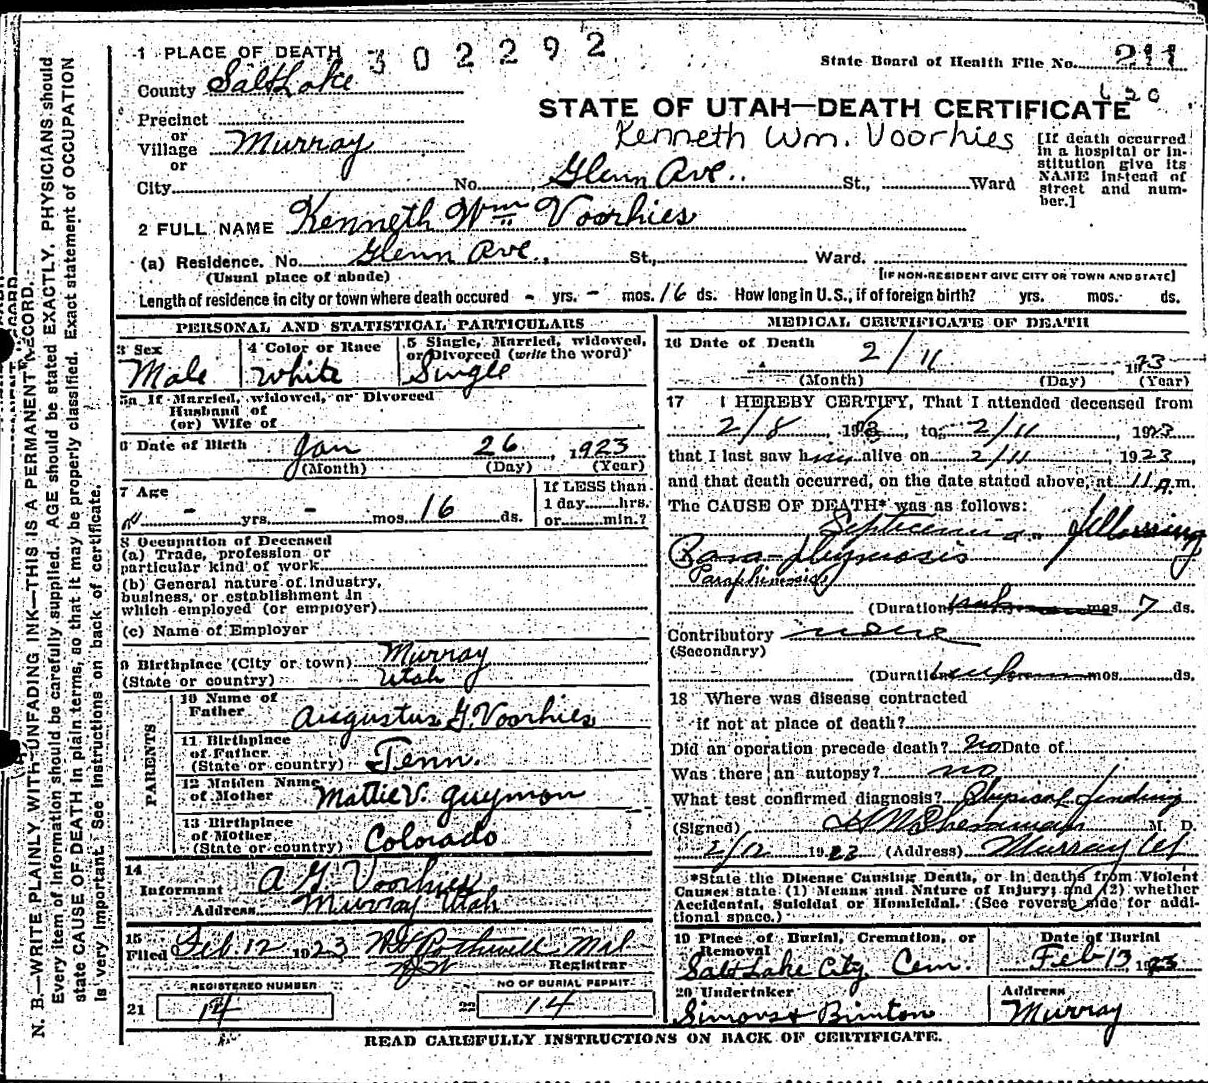 1 PLACE OF DEATH 302292
State Board of Health File No. 211
County Salt Lake
620
STATE OF UTAH—DEATH CERTIFICATE
Precinct
or
Village Murray
or
Kenneth Wm. Voorhies
[If death occurred in a hospital or institution give its NAME instead of street and number.]
City No. Glenn Ave. St., Ward
2 FULL NAME Kenneth Wm Voorhies
(a) Residence. No. Glenn Ave. St., Ward.
(Usual place of abode) [IF NON-RESIDENT GIVE CITY OR TOWN AND STATE]
Length of residence in city or town where death occured - yrs. - mos. 16 ds. How long in U.S., if of foreign birth? yrs. mos. ds.
PERSONAL AND STATISTICAL PARTICULARS
3 Sex Male
4 Color or Race White
5 Single, Married, widowed, or Divorced (write the word) Single
5a If Married, widowed, or Divorced
Husband of
(or) Wife of
6 Date of Birth Jan 26, 1923
(Month) (Day) (Year)
7 Age - yrs. - mos. 16 ds.
If LESS than
1 day......hrs.
or......min.?
8 Occupation of Deceased
(a) Trade, profession or
particular kind of work
(b) General nature of industry,
business, or establishment in
which employed (or employer)
(c) Name of Employer
9 Birthplace (City or town) Murray
(State or country) Utah
PARENTS
10 Name of
Father Augustus G. Voorhies
11 Birthplace
of Father
(State or country) Tenn.
12 Maiden Name
of Mother Mattie V. Guymon
13 Birthplace
of Mother
(State or country) Colorado
14
Informant A G Voorhies
Address Murray Utah
15
Filed Feb. 12 1923
Registrar
REGISTERED NUMBER
21 14
NO OF BURIAL PERMIT
22 14
MEDICAL CERTIFICATE OF DEATH
16 Date of Death 2/11 1923
(Month) (Day) (Year)
17 I HEREBY CERTIFY, That I attended deceased from
2/8, 1923, to 2/11, 1923
that I last saw him alive on 2/11, 1923,
and that death occurred, on the date stated above, at 11 A.m.
The CAUSE OF DEATH* was as follows:
Septicemia following
Para-phymosis
Paraphimosis
(Duration mos. 7 ds.
Contributory none
(Secondary)
(Duration mos. ds.
18 Where was disease contracted
if not at place of death?
Did an operation precede death? No Date of
Was there an autopsy? no
What test confirmed diagnosis? Physical finding
(Signed) M. D.
2/12 1923 (Address) Murray Ut
*State the Disease Causing Death, or in deaths from Violent
Causes state (1) Means and Nature of Injury; and (2) whether
Accidental, Suicidal or Homicidal. (See reverse side for addi-
tional space.)
19 Place of Burial, Cremation, or
Removal
Salt Lake City Cem.
Date of Burial
Feb 13, 1923
20 Undertaker
Simons & Brinton
Address
Murray
READ CAREFULLY INSTRUCTIONS ON BACK OF CERTIFICATE.
N. B.—WRITE PLAINLY WITH UNFADING INK—THIS IS A PERMANENT RECORD.
Every item of information should be carefully supplied. AGE should be stated EXACTLY. PHYSICIANS should
state CAUSE OF DEATH in plain terms, so that it may be properly classified. Exact statement of OCCUPATION
is very important. See instructions on back of certificate.